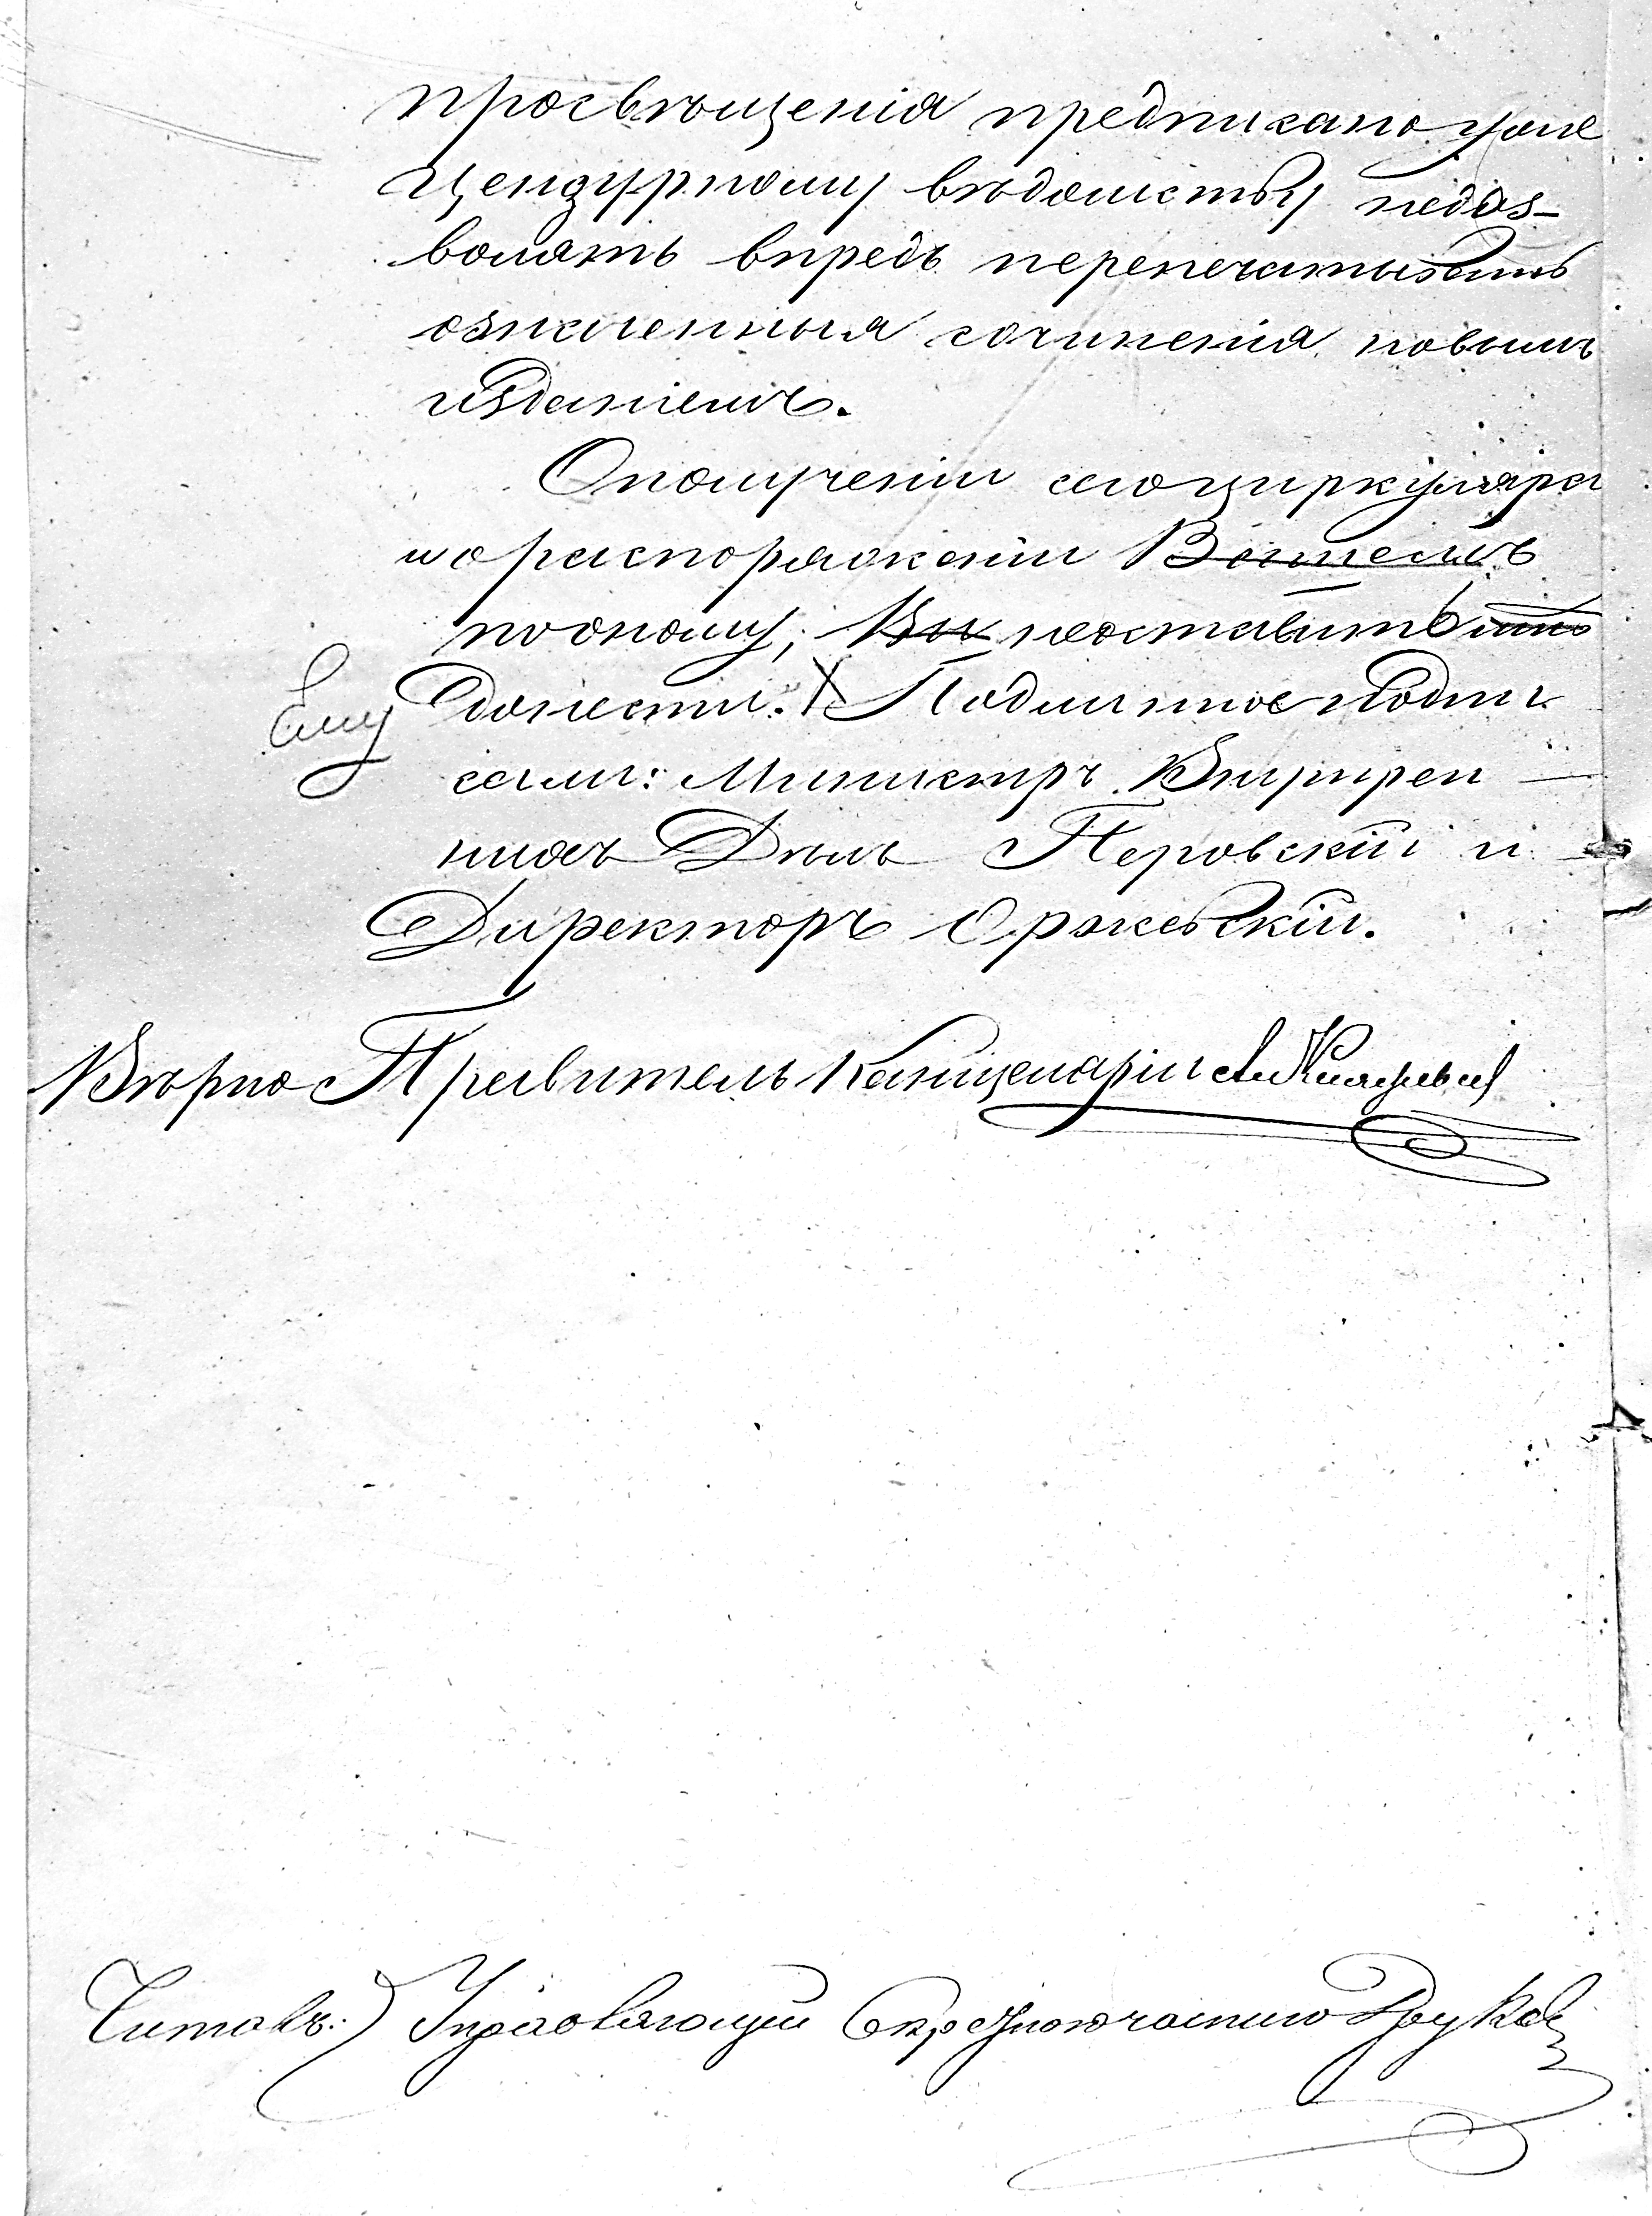 просвѣщенія предписано уже
Цензурному вѣдомству недоз-
волять впредь перепечатывать
означенныя сочинения новымъ
изданіемъ.
О получении сего циркуляра
и о распоряжении Вашемъ
по оному, Вы не оставите
Ему донести. Подлинное подпи
сали: Министръ Внутрен
нихъ Дѣлъ Перовскій и
Директоръ Оржевскій.
Вѣрно Правитель Канцеляріи
Читалъ: Управляющій Секретною частию